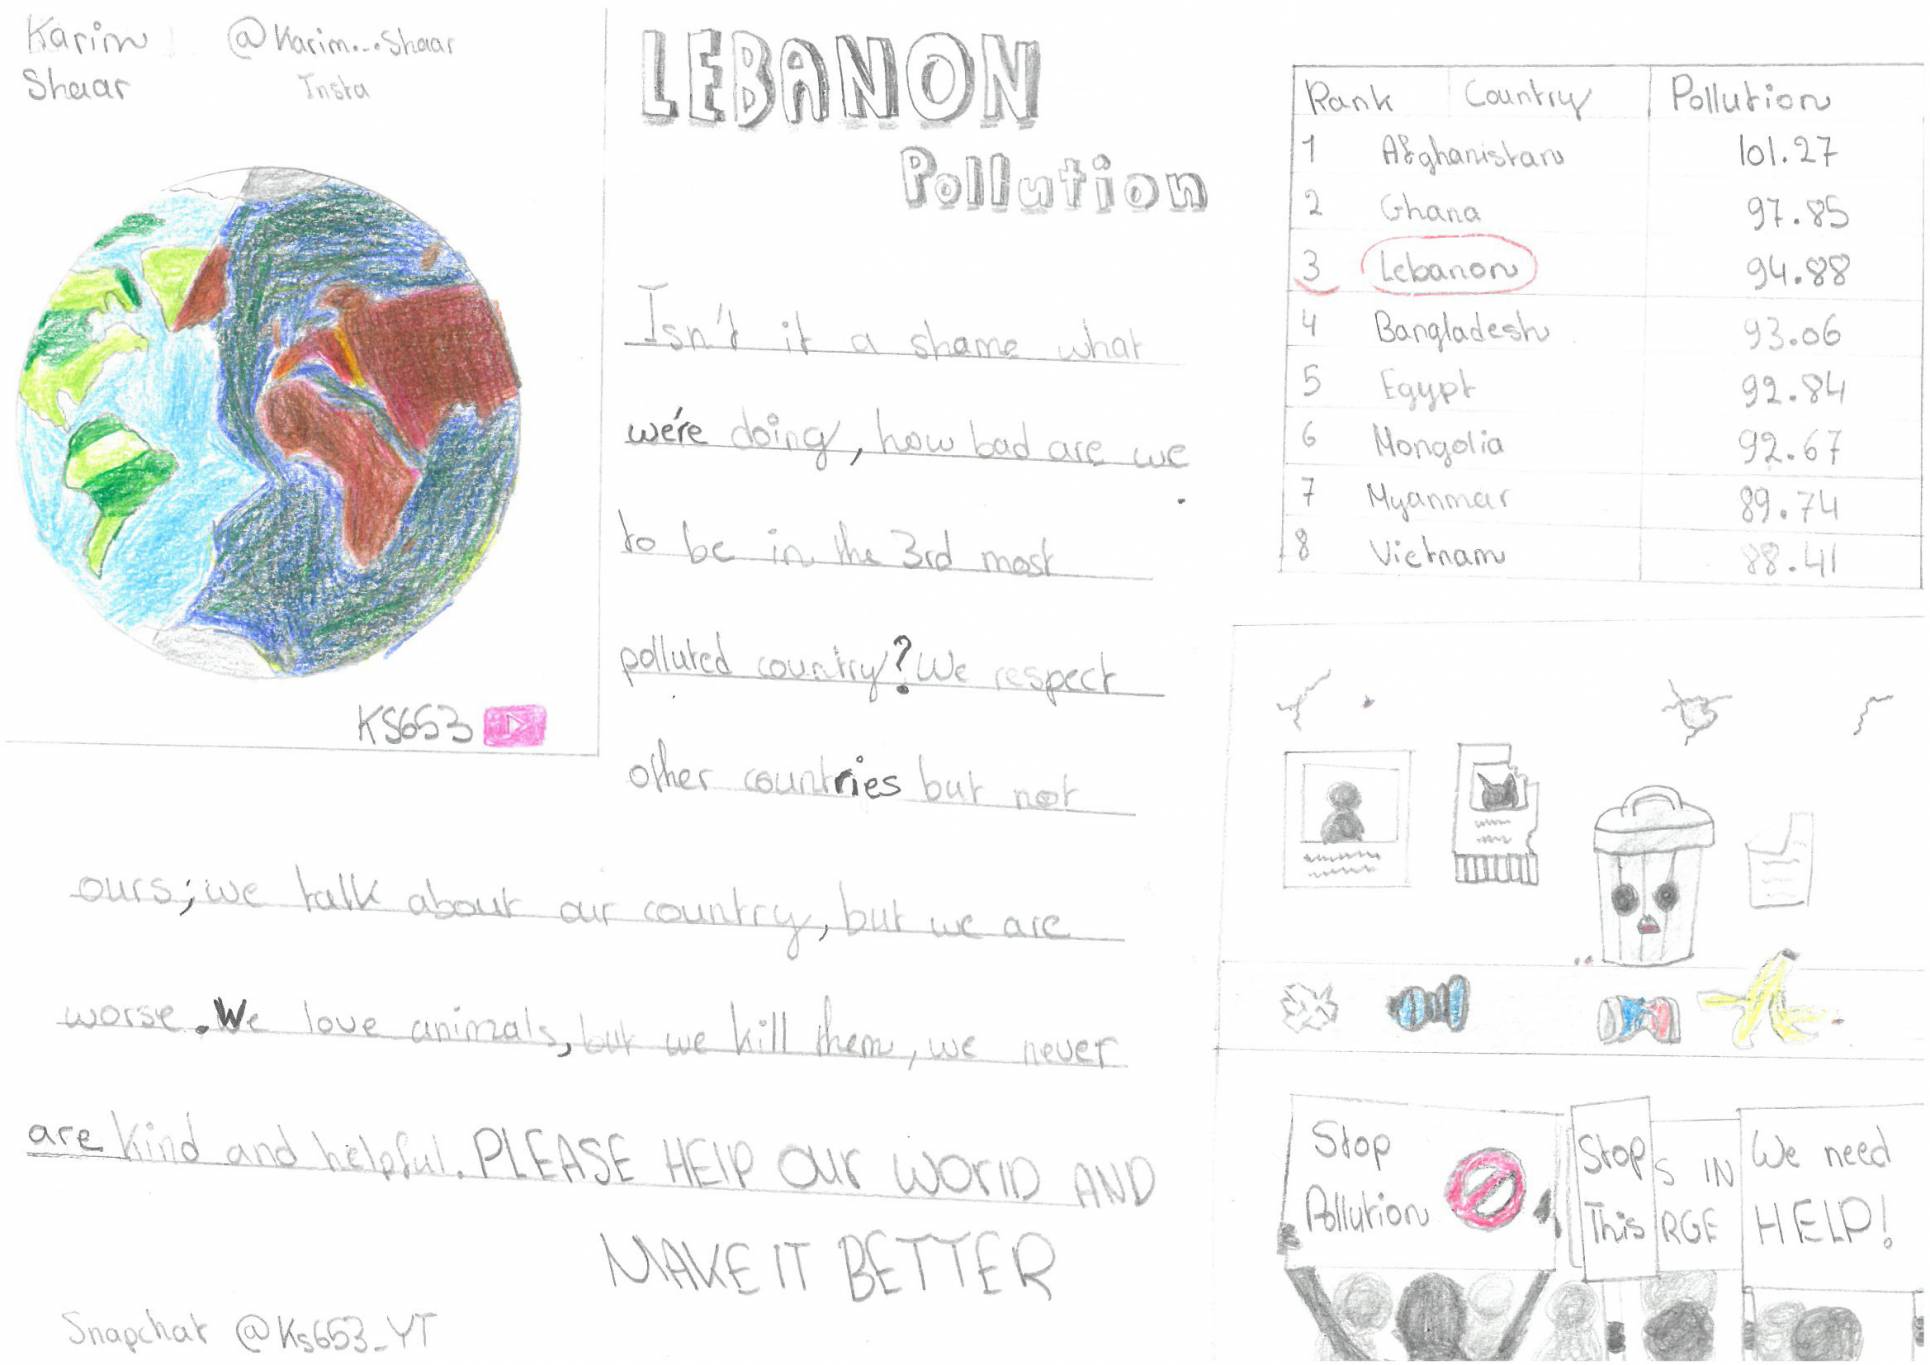 Karim
Shaar
@Karim._.Shaar
Insta
KS653
LEBANON
Pollution
Isn't it a shame what
we're doing, how bad are we
to be in the 3rd most
polluted country? We respect
other countries but not
ours; we talk about our country, but we are
worse. We love animals, but we kill them, we never
are kind and helpful. PLEASE HELP OUR WORLD AND
MAKE IT BETTER
Snapchat @Ks653_YT
Rank Country Pollution
1 Afghanistan 101.27
2 Ghana 97.85
3 Lebanon 94.88
4 Bangladesh 93.06
5 Egypt 92.84
6 Mongolia 92.67
7 Myanmar 89.74
8 Vietnam 88.41
Stop
Pollution
Stop
This
S IN
RGE
We need
HELP!